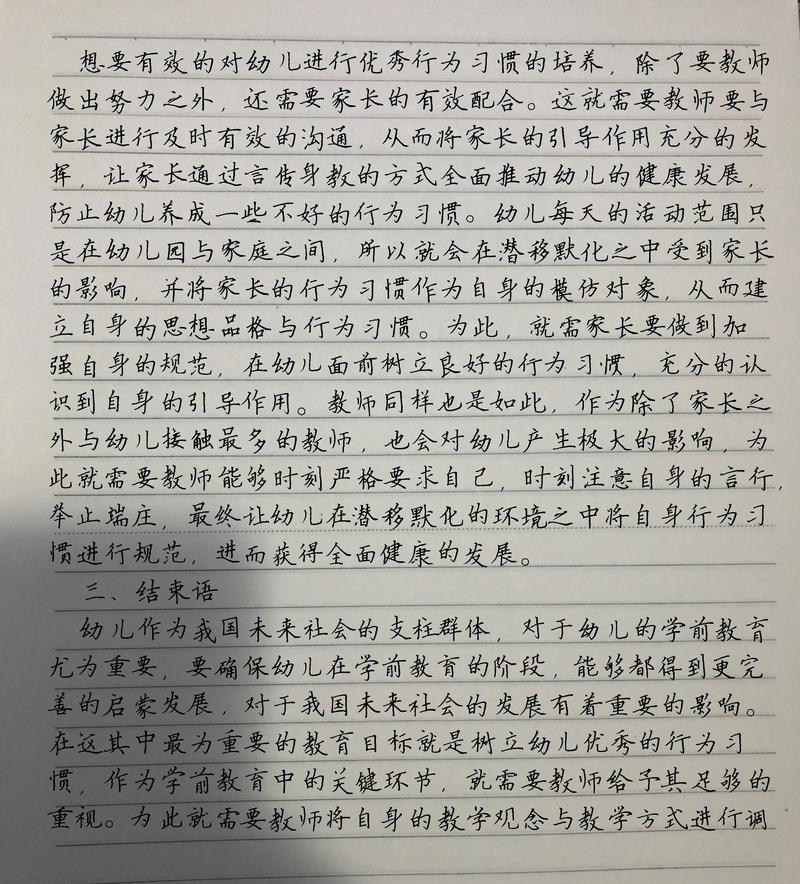 想要有效的对幼儿进行优秀行为习惯的培养，除了要教师
做出努力之外，还需要家长的有效配合。这就需要教师要与
家长进行及时有效的沟通，从而将家长的引导作用充分的发
挥，让家长通过言传身教的方式全面推动幼儿的健康发展，
防止幼儿养成一些不好的行为习惯。幼儿每天的活动范围只
是在幼儿园与家庭之间，所以就会在潜移默化之中受到家长
的影响，并将家长的行为习惯作为自身的模仿对象，从而建
立自身的思想品格与行为习惯。为此，就需家长要做到加
强自身的规范，在幼儿面前树立良好的行为习惯，充分的认
识到自身的引导作用。教师同样也是如此，作为除了家长之
外与幼儿接触最多的教师，也会对幼儿产生极大的影响，为
此就需要教师能够时刻严格要求自己，时刻注意自身的言行，
举止端庄，最终让幼儿在潜移默化的环境之中将自身行为习
惯进行规范，进而获得全面健康的发展。
三、结束语
幼儿作为我国未来社会的支柱群体，对于幼儿的学前教育
尤为重要，要确保幼儿在学前教育的阶段，能够都得到更完
善的启蒙发展，对于我国未来社会的发展有着重要的影响。
在这其中最为重要的教育目标就是树立幼儿优秀的行为习
惯，作为学前教育中的关键环节，就需要教师给予其足够的
重视。为此就需要教师将自身的教学观念与教学方式进行调